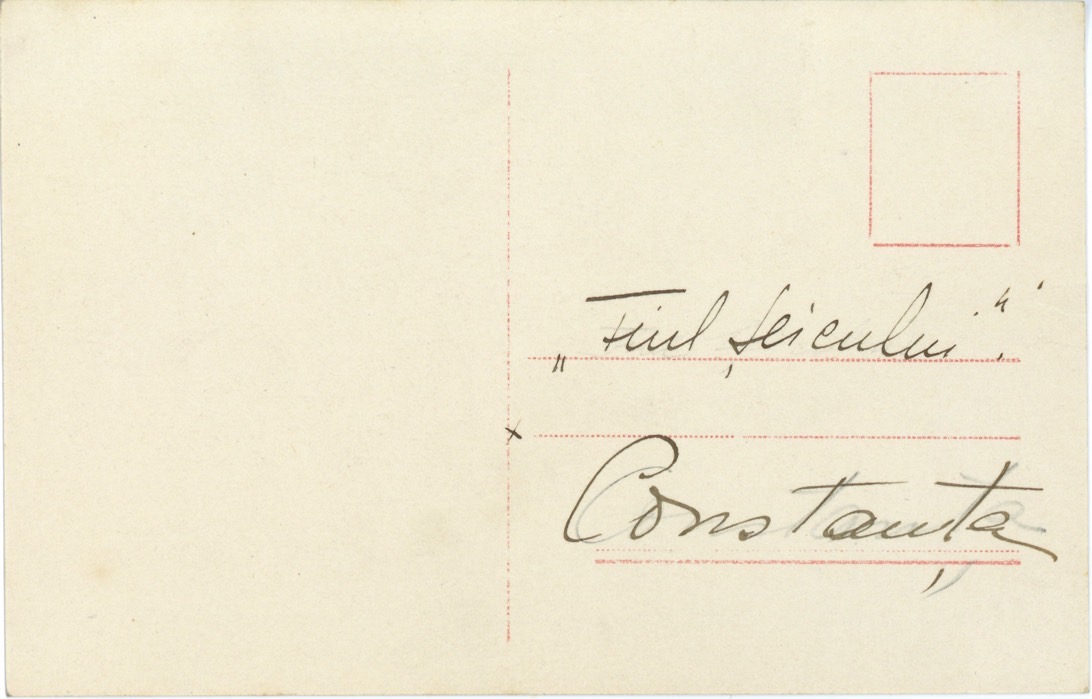 „Fiul Șeicului".
Constanța